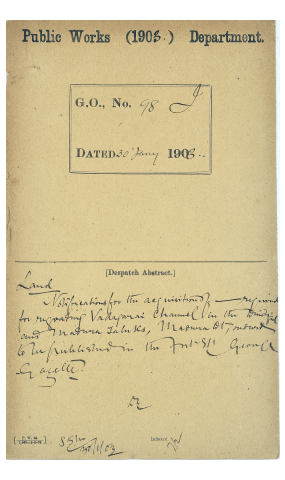 Public Works (1903.) Department.
G.O., No. 98 I
DATED 30 Jany 1903.
[Despatch Abstract.]
Land
Notifications for the acquisition of — required
for regrading Vadagarai Channel in the Dindigul
and Madura Taluks, Madura Dt, ordered
to be published in the Fort St George
Gazette.